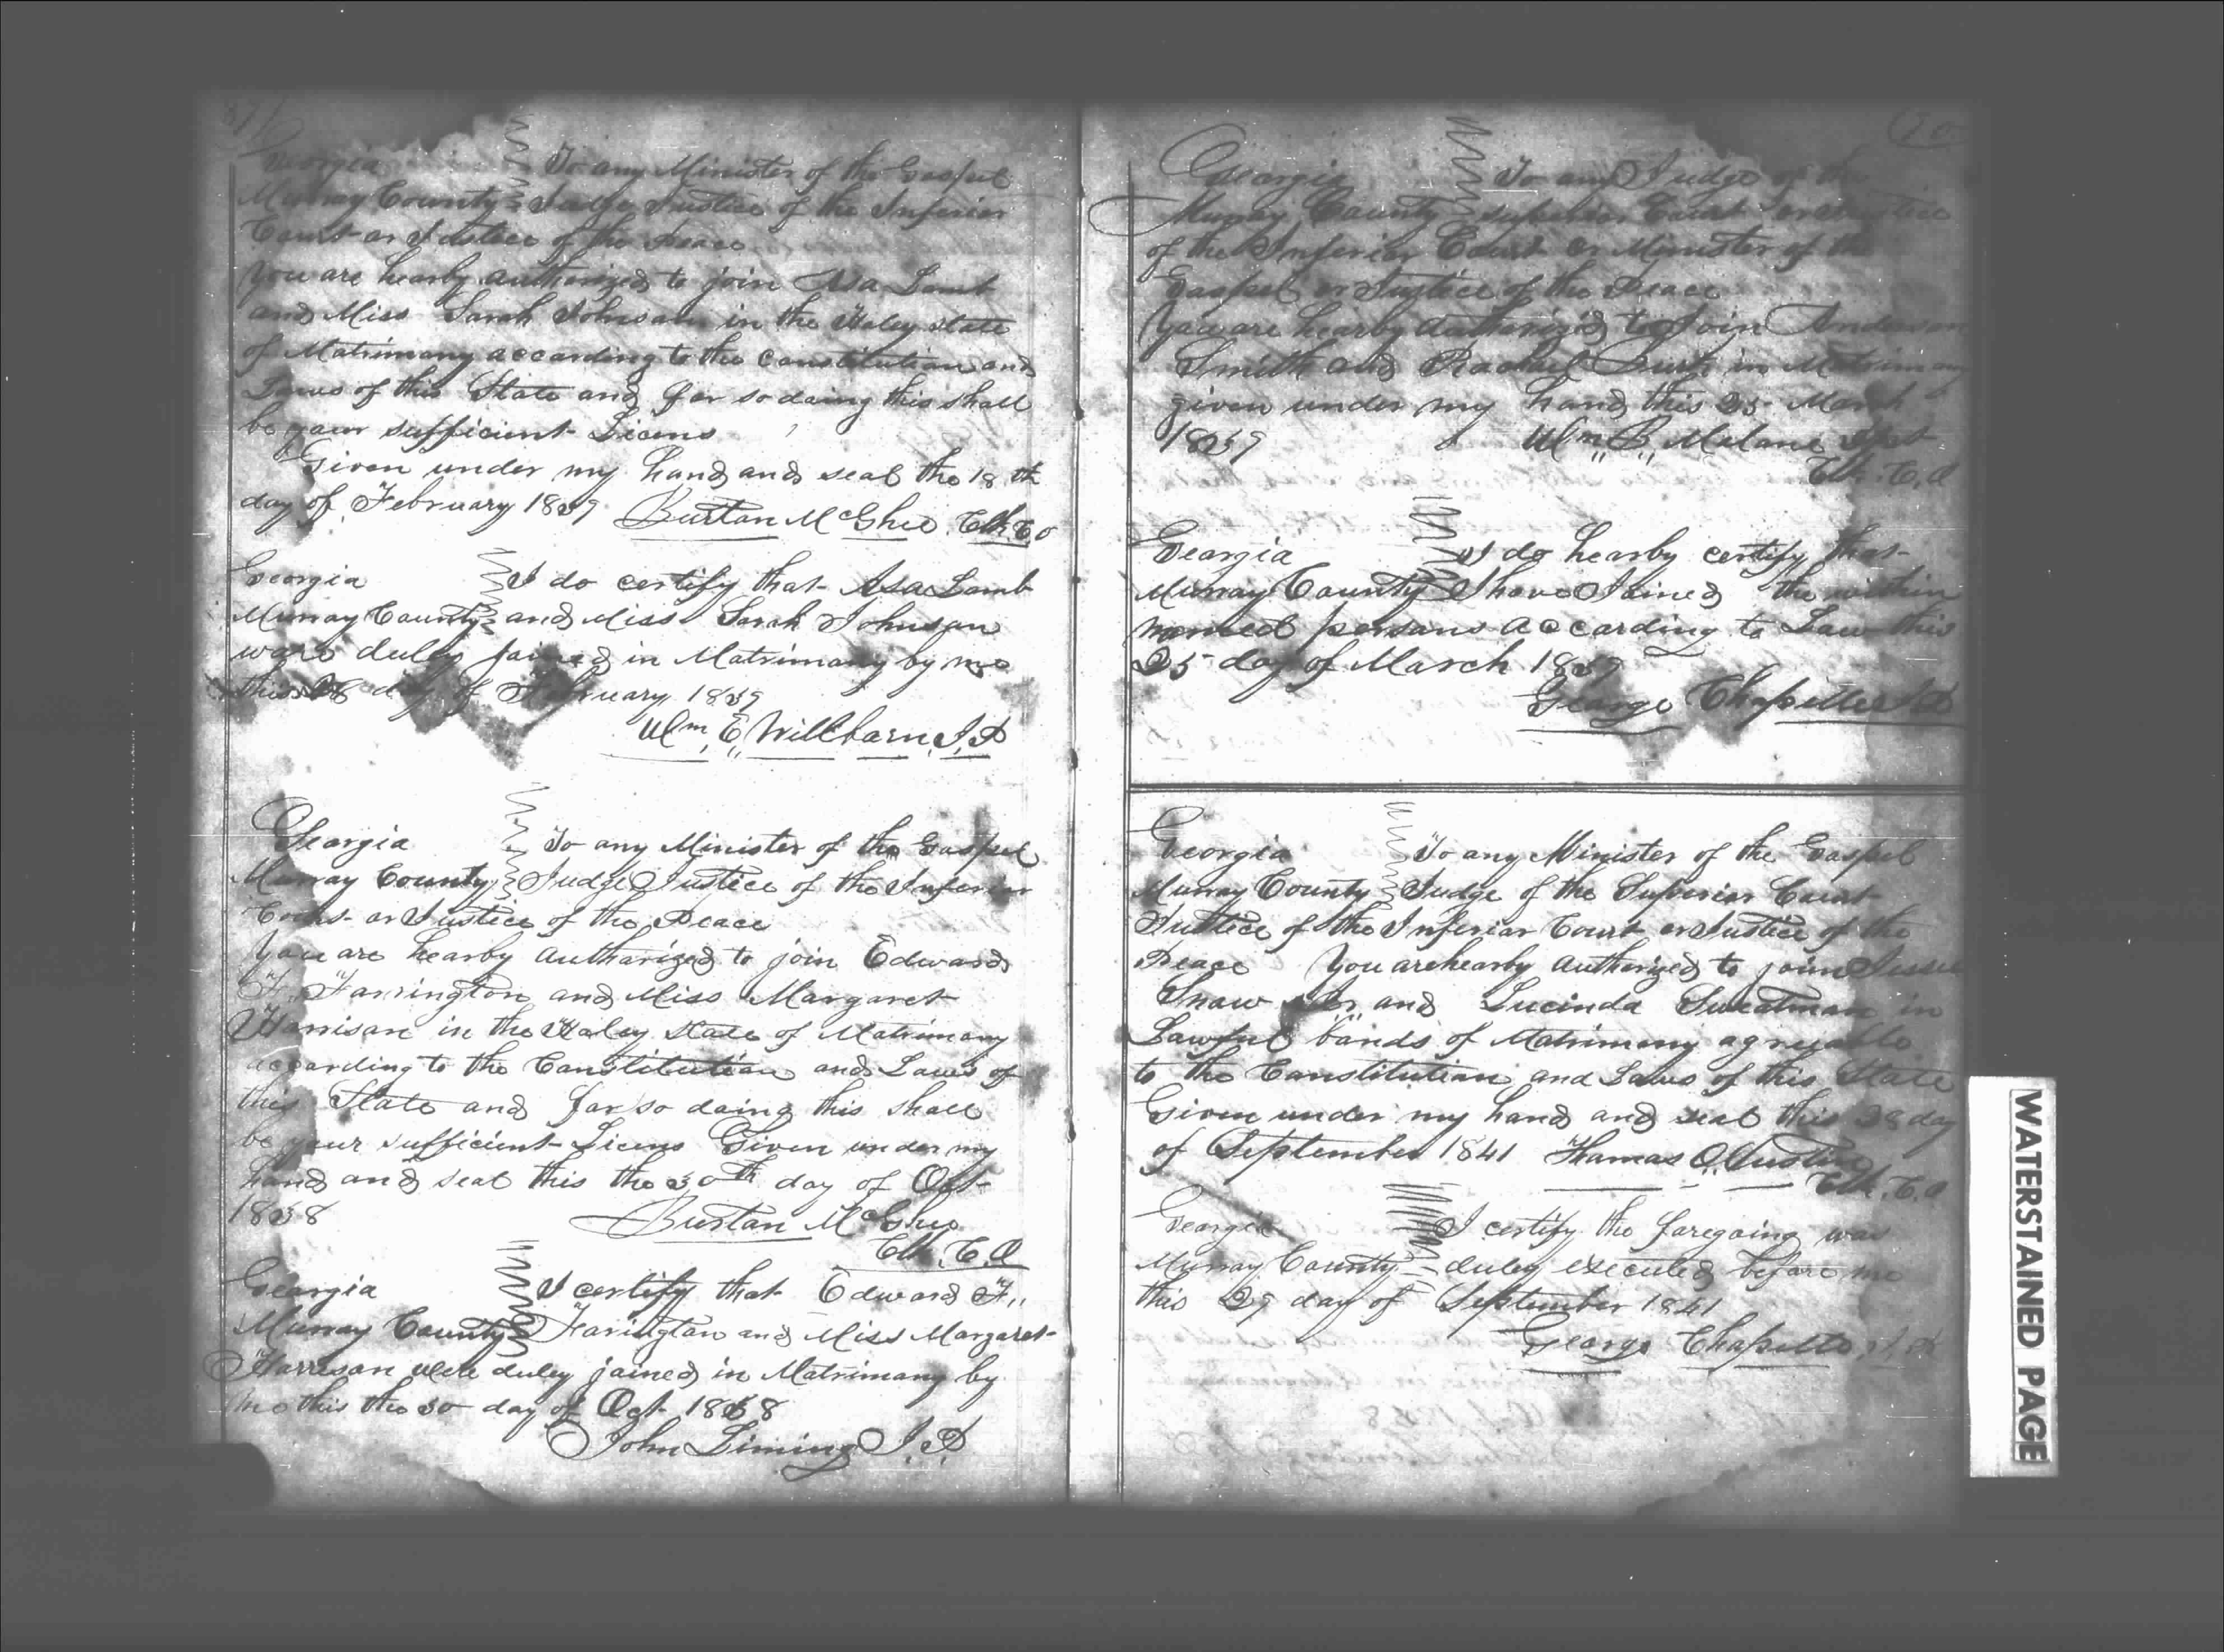 Georgia To any Minister of the Gospel
Murray County Judge Justice of the Inferior
Court or Justice of the Peace
You are hearby authorized to join Asa Lamb
and Miss Sarah Johnson in the Holey state
of Matrimony according to the Constitution and
Laws of this State and for so doing this shall
be your sufficient Licens
Given under my hand and seal the 18th
day of February 1839 Burton McGhee Clk C.O
Georgia I do certify that Asa Lamb
Murray County and Miss Sarah Johnson
ware duley joined in Matrimony by me
this day of February 1839
Wm E Willbarn J.P
Georgia To any Minister of the Gospel
Murray County Judge Justice of the Inferior
Court or Justice of the Peace
You are hearby authorized to join Edward
F. Farrington and Miss Margaret
Harrison in the Holey state of Matrimony
according to the Constitution and Laws of
this State and for so doing this shall
be your sufficient Licens Given under my
hand and seal this the 30th day of Oct
1838 Burton McGhee
Clk. C.O
Georgia I certify that Edward F,,
Murray County Farington and Miss Margaret
Harrison were duley joined in Matrimony by
me this the 30 day of Oct 1838
John Liming J.P
Georgia To any Judge of the
Murray County superior Court or Justice
of the Inferior Court or Minister of the
Gospel or Justice of the Peace
You are hearby Authorized to Join Anderson
Smith and Rachael in Matrimony
given under my hand this 25 March
1839 Wm,, B,, Malone
Clk. C.O
Georgia I do hearby certify that
Murray County I have Joined the within
named persons according to Law this
25 day of March 1839
George Chapelle J P
Georgia To any Minister of the Gospel
Murray County Judge of the Superior Court
Justice of the Inferior Court or Justice of the
Peace You are hearby authorized to join Jesse
Snow and Lucinda Sweatman in
Lawful bands of Matrimony agreeable
to the Constitution and Laws of this State
Given under my hand and seal this 28 day
of September 1841 Thomas Q. Austin
Clk. C.O
Georgia I certify the foregoing was
Murray County duley executed before me
this 29 day of September 1841
George Chapelle J.P
WATERSTAINED PAGE